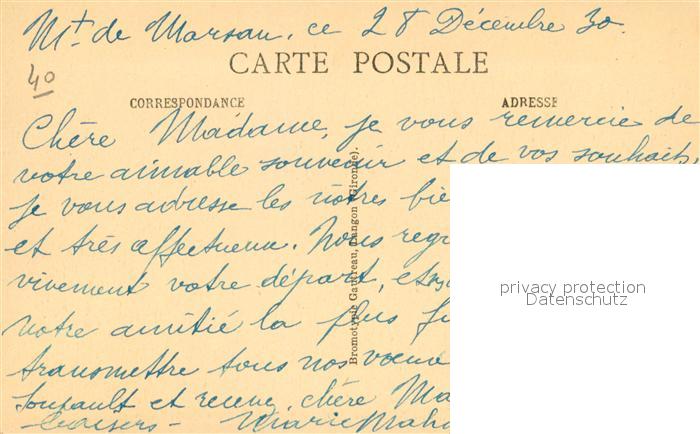 Mt de Marsan, ce 28 Décembre 30.
40
CARTE POSTALE
CORRESPONDANCE
ADRESSE
Chère Madame, je vous remercie de
votre aimable souvenir et de vos souhaits,
je vous adresse les nôtres bie
et très affectueux. Nous regr
vivement votre départ, et
votre amitié la plus
transmettre tous nos vœux
et recevez, chère Ma
baisers - Marie
Bromotypie Gautreau, Langon (Gironde).
privacy protection
Datenschutz